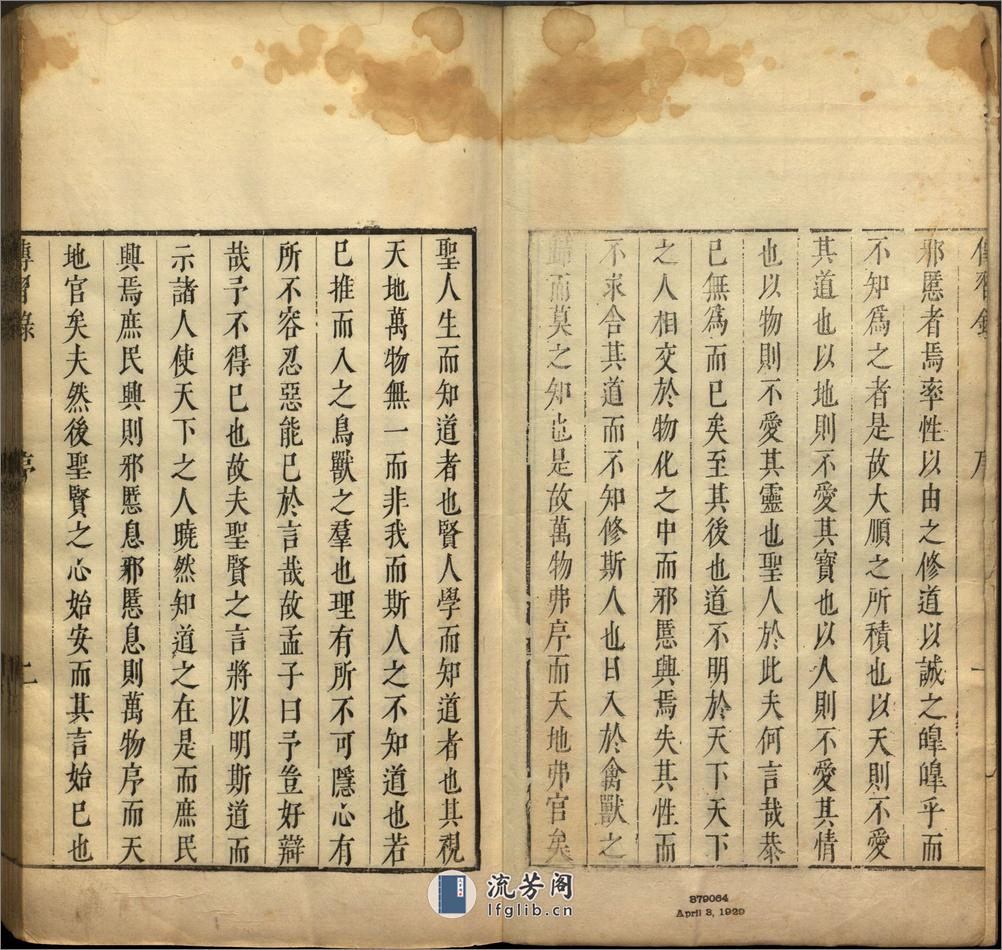 傳習錄 序
邪慝者焉率性以由之修道以誠之皥皥乎而
不知爲之者是故大順之所積也以天則不愛
其道也以地則不愛其寶也以人則不愛其情
也以物則不愛其靈也聖人於此夫何言哉恭
已無爲而已矣至其後也道不明於天下天下
之人相交於物化之中而邪慝興焉失其性而
不求合其道而不知修斯人也日入於禽獸之
歸而莫之知也是故萬物弗序而天地弗官矣
聖人生而知道者也賢人學而知道者也其視
天地萬物無一而非我而斯人之不知道也若
已推而入之鳥獸之羣也理有所不可隱心有
所不容忍惡能已於言哉故孟子曰予豈好辯
哉予不得已也故夫聖賢之言將以明斯道而
示諸人使天下之人曉然知道之在是而庶民
興焉庶民興則邪慝息邪慝息則萬物序而天
地官矣夫然後聖賢之心始安而其言始已也
傳習錄 序
流芳阁
lfglib.cn
379064
April 3, 1929